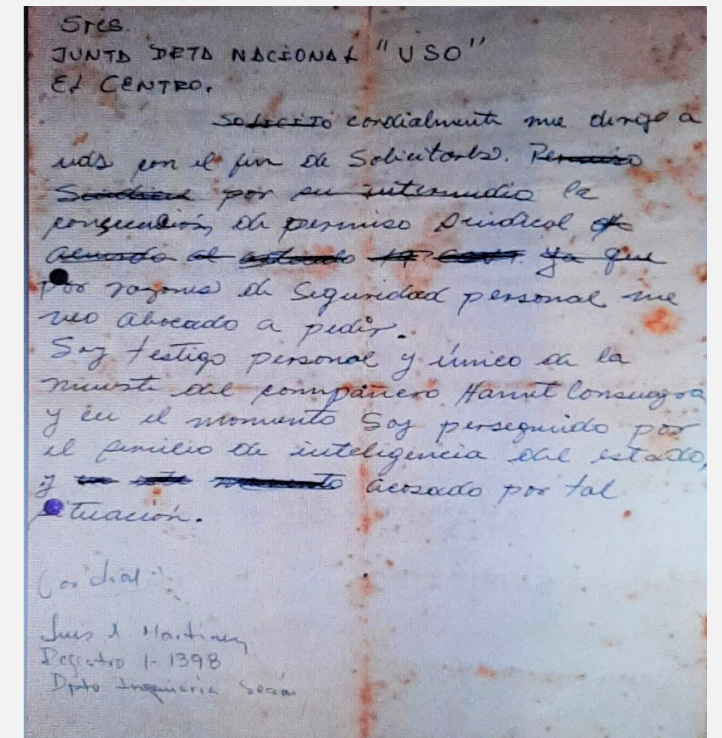 Sres.
JUNTA DETA NACIONAL "USO"
El CENTRO.
Solicito cordialmente me dirijo a
uds con el fin de Solicitarles. Permiso
Sindical por su intermedio la
consecución de permiso Sindical de
acuerdo al Ya que
por razones de Seguridad personal me
veo abocado a pedir.
Soy testigo personal y único de la
muerte del compañero Hamet Consuegra
y en el momento Soy perseguido por
el servicio de inteligencia del estado,
y en este momento acosado por tal
situación.
Cordial
Luis A. Martinez
Registro 1-1398
Dpto Ingenieria